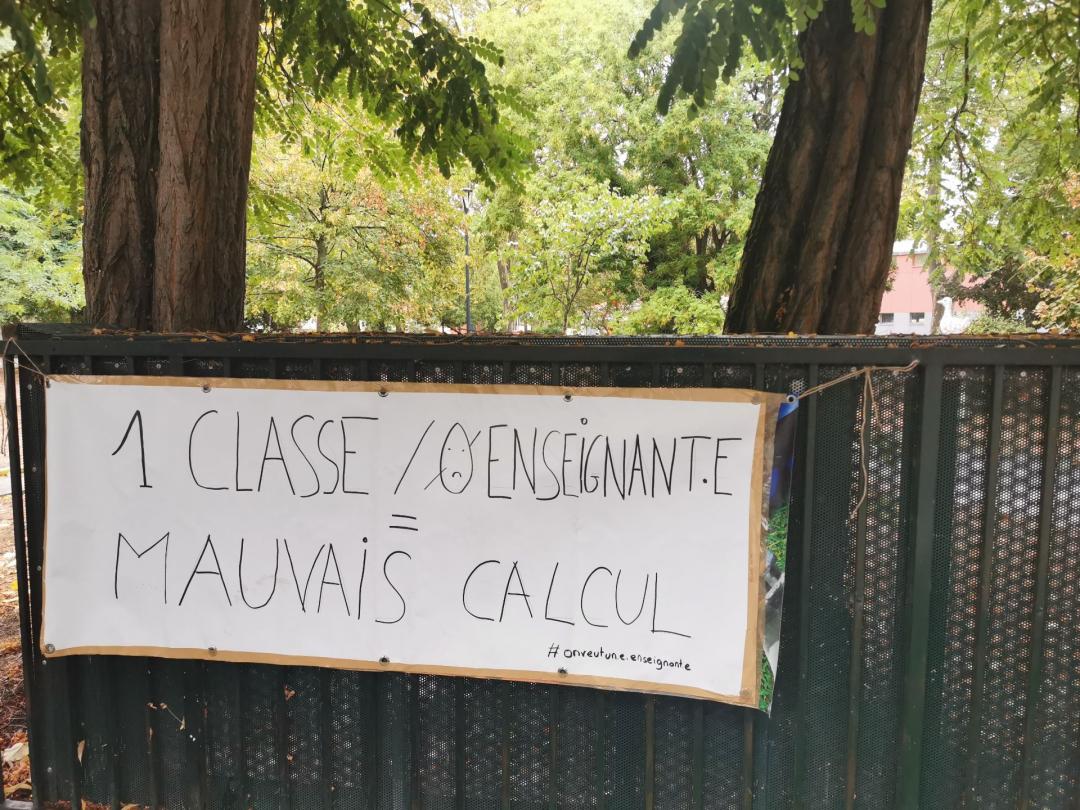 1 CLASSE / 0 ENSEIGNANT.E
=
MAUVAIS CALCUL
# onveutun.e.enseignante